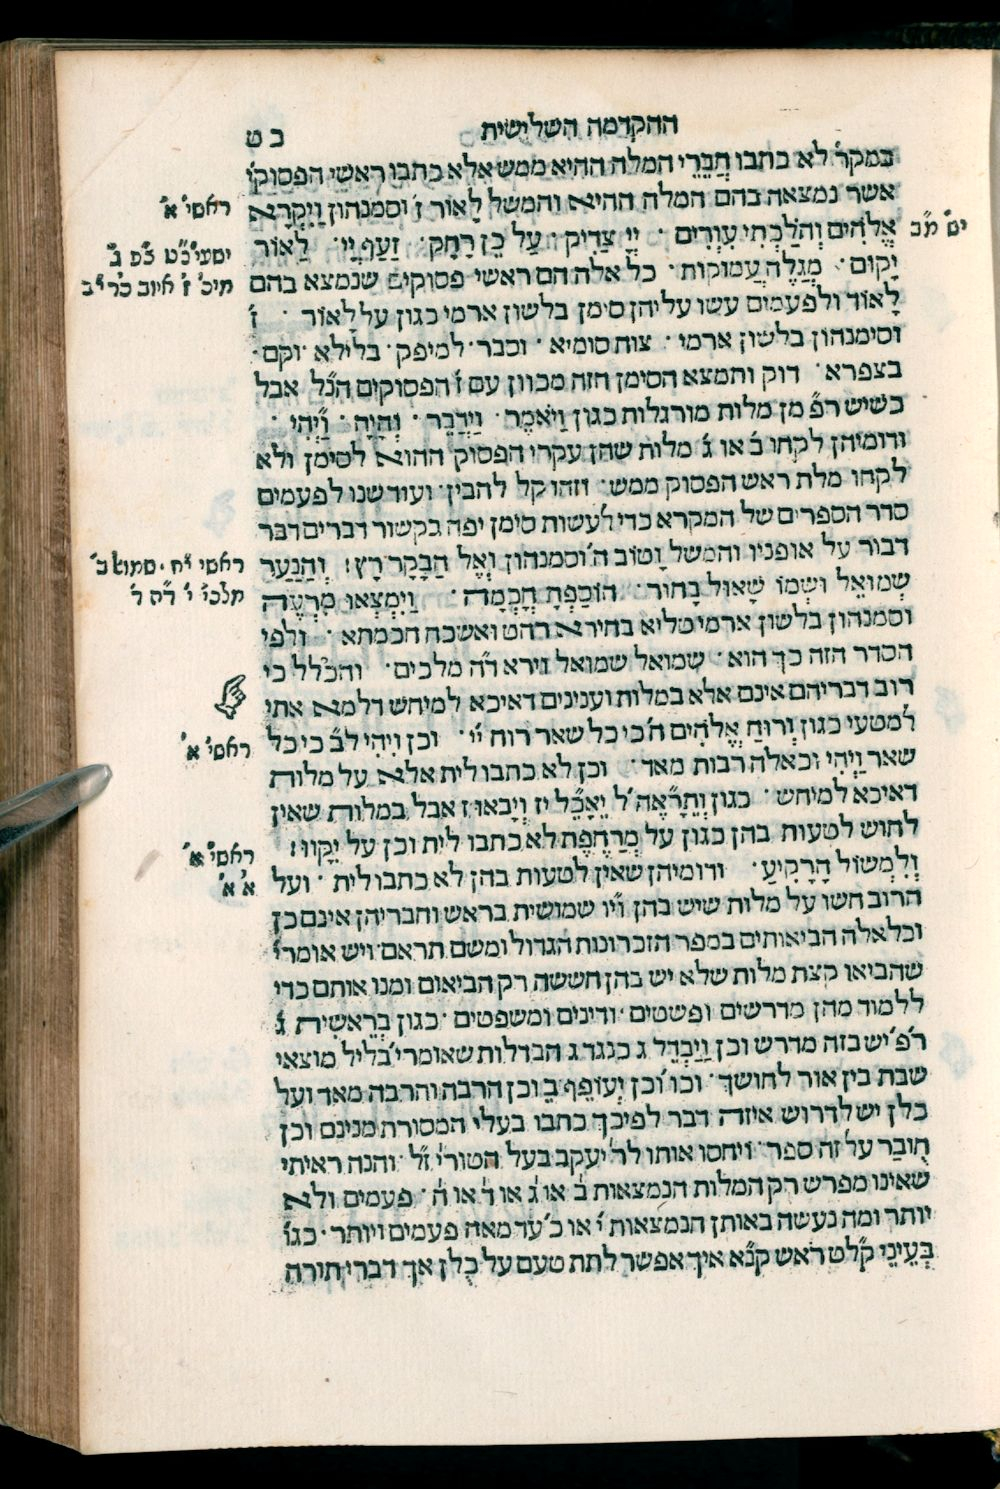 ההקדמה השלישית
כט
במקר' לא כתבו חֲבֵרֵי המלה ההיא ממש אלא כתבו ראשי הפסוקי'
אשר נמצאה בהם המלה ההיא והמשל לָאוֹר ז' וסמנהון וַיִקְרָא
ראשי' א'
אֱלֹהִים וְהֹלַכְתִּי עִוְרִים · יְיָ צַדִיק · עַל כֵּן רָחַק · זַעַף יְיָ · לָאוֹר
יש' מ"ב
ישעי' כ"ט צפ ג'
יָקוּם · מְגַלֶה עֲמוּקוֹת · כל אלה הם ראשי פסוקים שנמצא בהם
מיכ' ז' איוב כד י"ב
לָאוֹר ולפעמים עשו עליהן סימן בלשון ארמי כגון על לָאוֹר · ז'
וסימנהון בלשון ארמי · צוח סומיא · וסבר · למיפק · בלילא · וקם ·
בצפרא · דוק ותמצא הסימן הזה מכוון עם ז' הפסוקים הנ"ל אבל
כשיש ר"פ מן מלות מורגלות כגון וַיֹאמֶר · וַיְדַבֵּר · וְהָיָה · וַיְהִי ·
ודומיהן לקחו ב' או ג' מלות שהן עקרי הפסוק ההוא לסימן ולא
לקחו מלת ראש הפסוק ממש · וזהו קל להבין · ועוד שנו לפעמים
סדר הספרים של המקרא כדי לעשות סימן יפה בקשור דברים דבר
דבור על אופניו והמשל וָטוֹב ה' וסמנהון וְאֶל הַבָקָר רָץ : וְהַנַעַר
ראשי' י"ח · שמוא' ב'
שְׁמוּאֵל וּשְׁמוֹ שָׁאוּל בָחוּר · הוֹסַפְתָּ חָכְמָה · וַיִמְצְאוּ מִרְעֶה
מלכי' י' ד"ה ד'
וסמנהון בלשון ארמי טליא בחירא רהט ואשכח חכמתא · ולפי
הסדר הזה כך הוא · שמואל שמואל וירא ד"ה מלכים · והכלל כי
רוב דבריהם אינם אלא במלות וענינים דאיכא למיחש דלמא אתי
למטעי כגון וְרוּחַ אֱלֹהִים ה' כי כל שאר רוח יי' · וכן ויהי ל"ב כי כל
ראשי' א'
שאר וַיְהִי וכאלה רבות מאד · וכן לא כתבו לית אלא על מלות
דאיכא למיחש · כגון וְתֵרָאֶה ל' יֵאָכֵל יז וְיָבֹאוּ ז אבל במלות שאין
לחוש לטעות בהן כגון על מְרַחֶפֶת לא כתבו לית וכן על יִקָווּ :
ראשי' א'
וְלִמְשׁוֹל הָרָקִיעַ · ודומיהן שאין לטעות בהן לא כתבו לית · ועל
א' א'
הרוב חשו על מלות שיש בהן וי"ו שמושית בראש וחבריהן אינם כן
וכל אלה הביאותים בספר הזכרונות הגדול ומשם תראם · ויש אומרי'
שהביאו קצת מלות שלא יש בהן חששה רק הביאום ומנו אותם כדי
ללמוד מהן מדרשים ופשטים · ודינים ומשפטים · כגון בְּרֵאשִׁית ג'
ר"פ יש בזה מדרש וכן וַיַבְדֵל ג כנגד ג הבדלות שאומרי' בליל מוצאי
שבת בין אור לחושך · וכו' וכן יְעוֹפֵף ב וכן הרבה והרבה מאד ועל
כלן יש לדרוש איזה דבר לפיכך כתבו בעלי המסורת מנינם וכן
חובר על זה ספר · ויחסו אותו לר' יעקב בעל הטורי' ז"ל · והנה ראיתי
שאינו מפרש רק המלות הנמצאות ב' או ג' או ד' או ה' · פעמים ולא
יותר ומה נעשה באותן הנמצאות י' או כ' עד מאה פעמים ויותר · כגו'
בְּעֵינֵי ק"לט רֹאש קנ"א איך אפשר לתת טעם על כלן אך דברי תורה